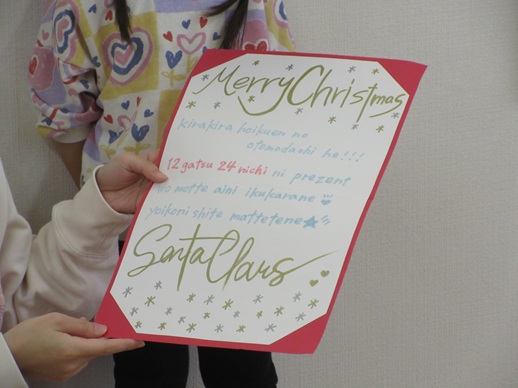 Merry Christmas
kirakira hoikuen no
otomodachi he!!!
12 gatsu 24 nichi ni prezent
wo motte aini ikukarane
yoikoni shite mattetene
Santa Claus